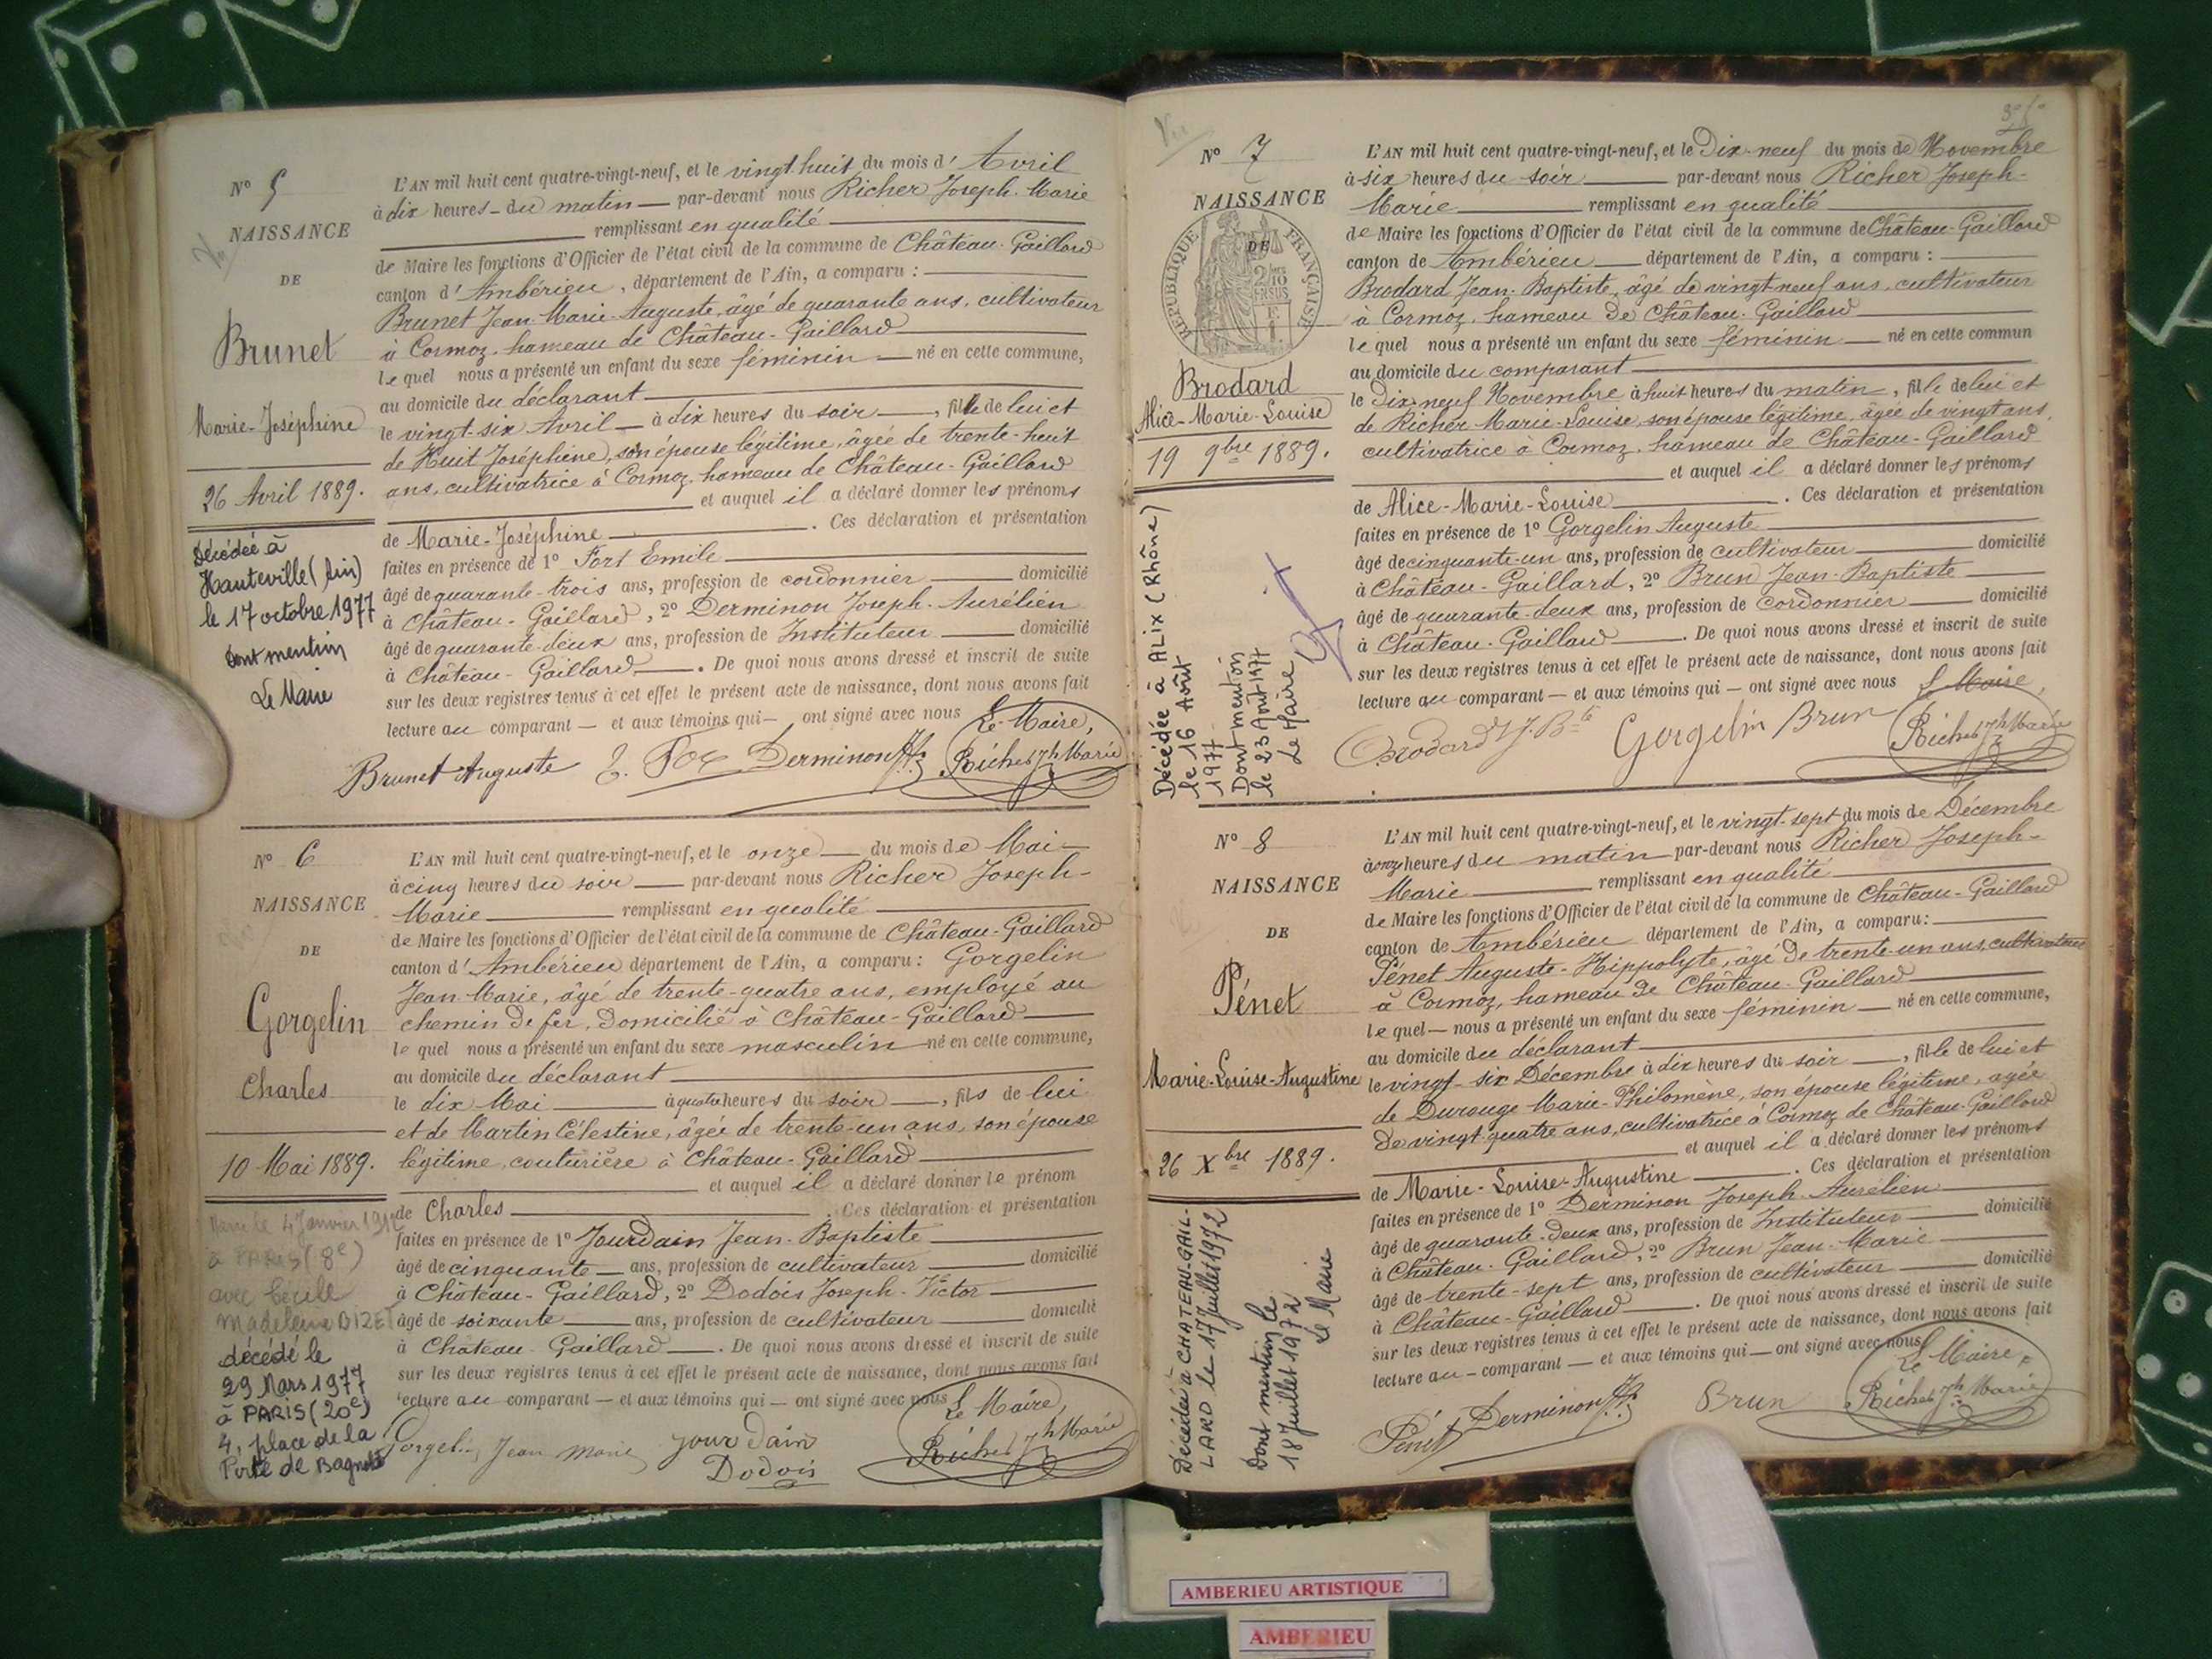 Nº 5
NAISSANCE
DE
Brunet
Marie-Joséphine
26 Avril 1889.
Décédée à
Hauteville (Ain)
le 17 octobre 1977
dont mention
Le Maire
L'AN mil huit cent quatre-vingt-neuf, et le vingt huit du mois d'Avril
à dix heures du matin par-devant nous Richer Joseph-Marie
remplissant en qualité
de Maire les fonctions d'Officier de l'état civil de la commune de Château-Gaillard
canton d'Ambérieu, département de l'Ain, a comparu :
Brunet Jean-Marie-Auguste, âgé de quarante ans, cultivateur
à Cormoz, hameau de Château-Gaillard
lequel nous a présenté un enfant du sexe féminin né en cette commune,
au domicile du déclarant
le vingt-six Avril à dix heures du soir, fille de lui et
de Huit Joséphine, son épouse légitime, âgée de trente-huit
ans, cultivatrice à Cormoz, hameau de Château-Gaillard
et auquel il a déclaré donner les prénoms
de Marie-Joséphine. Ces déclaration et présentation
faites en présence de 1º Fort Emile
âgé de quarante-trois ans, profession de cordonnier domicilié
à Château-Gaillard, 2º Derminon Joseph-Aurélien
âgé de quarante-deux ans, profession de Instituteur domicilié
à Château-Gaillard. De quoi nous avons dressé et inscrit de suite
sur les deux registres tenus à cet effet le présent acte de naissance, dont nous avons fait
lecture au comparant et aux témoins qui ont signé avec nous
Le Maire,
Brunet Auguste Derminon Richer Jh Marie
Nº 6
NAISSANCE
DE
Gorgelin
Charles
10 Mai 1889.
4 Janvier
à PARIS (8e)
avec Cécile
Madeleine BIZET
décédé le
29 Mars 1977
à PARIS (20e)
4, place de la
Porte de Bagnolet
L'AN mil huit cent quatre-vingt-neuf, et le onze du mois de Mai
à cinq heures du soir par-devant nous Richer Joseph-
Marie remplissant en qualité
de Maire les fonctions d'Officier de l'état civil de la commune de Château-Gaillard
canton d'Ambérieu département de l'Ain, a comparu : Gorgelin
Jean-Marie, âgé de trente-quatre ans, employé au
chemin de fer, Domicilié à Château-Gaillard
lequel nous a présenté un enfant du sexe masculin né en cette commune,
au domicile du déclarant
le dix Mai à quatre heures du soir, fils de lui
et de Martin Célestine, âgée de trente-un ans, son épouse
légitime, couturière à Château-Gaillard
et auquel il a déclaré donner le prénom
de Charles. Ces déclaration et présentation
faites en présence de 1º Jourdain Jean-Baptiste
âgé de cinquante ans, profession de cultivateur domicilié
à Château-Gaillard, 2º Dodois Joseph-Victor
âgé de soixante ans, profession de cultivateur domicilié
à Château-Gaillard. De quoi nous avons dressé et inscrit de suite
sur les deux registres tenus à cet effet le présent acte de naissance, dont nous avons fait
lecture au comparant et aux témoins qui ont signé avec nous
Le Maire,
Gorgelin Jean Marie Jourdain Richer Jh Marie
Dodois
Nº 7
NAISSANCE
DE
RÉPUBLIQUE FRANÇAISE
Brodard
Alice-Marie-Louise
19 9bre 1889.
Décédée à ALIX (Rhône)
le 16 Août
1977
Dont mention
le 23 Août 1977
Le Maire
L'AN mil huit cent quatre-vingt-neuf, et le Dix-neuf du mois de Novembre
à six heures du soir par-devant nous Richer Joseph-
Marie remplissant en qualité
de Maire les fonctions d'Officier de l'état civil de la commune de Château-Gaillard
canton de Ambérieu département de l'Ain, a comparu :
Brodard Jean-Baptiste, âgé de vingt-neuf ans, cultivateur
à Cormoz, hameau de Château-Gaillard
lequel nous a présenté un enfant du sexe féminin né en cette commun
au domicile du comparant
le Dix-neuf Novembre à huit heures du matin, fille de lui et
de Richer Marie-Louise, son épouse légitime, âgée de vingt ans,
cultivatrice à Cormoz, hameau de Château-Gaillard
et auquel il a déclaré donner les prénoms
de Alice-Marie-Louise. Ces déclaration et présentation
faites en présence de 1º Gorgelin Auguste
âgé de cinquante-un ans, profession de cultivateur domicilié
à Château-Gaillard, 2º Brun Jean-Baptiste
âgé de quarante-deux ans, profession de cordonnier domicilié
à Château-Gaillard. De quoi nous avons dressé et inscrit de suite
sur les deux registres tenus à cet effet le présent acte de naissance, dont nous avons fait
lecture au comparant et aux témoins qui ont signé avec nous
Le Maire,
Brodard J. Bte Gorgelin Brun Richer Jh Marie
Nº 8
NAISSANCE
DE
Pénet
Marie-Louise-Augustine
26 Xbre 1889.
Décédée à CHATEAU-GAIL-
LARD le 17 Juillet 1972
Dont mention le
18 Juillet 1972
Le Maire
L'AN mil huit cent quatre-vingt-neuf, et le vingt-sept du mois de Décembre
à onze heures du matin par-devant nous Richer Joseph-
Marie remplissant en qualité
de Maire les fonctions d'Officier de l'état civil de la commune de Château-Gaillard
canton de Ambérieu département de l'Ain, a comparu :
Pénet Auguste-Hippolyte, âgé de trente-un ans, cultivateur
à Cormoz, hameau de Château-Gaillard
lequel nous a présenté un enfant du sexe féminin né en cette commune,
au domicile du déclarant
le vingt-six Décembre à dix heures du soir, fille de lui et
de Durouge Marie-Philomène, son épouse légitime, âgée
de vingt-quatre ans, cultivatrice à Cormoz de Château-Gaillard
et auquel il a déclaré donner les prénoms
de Marie-Louise-Augustine. Ces déclaration et présentation
faites en présence de 1º Derminon Joseph-Aurélien
âgé de quarante-deux ans, profession de Instituteur domicilié
à Château-Gaillard, 2º Brun Jean-Marie
âgé de trente-sept ans, profession de cultivateur domicilié
à Château-Gaillard. De quoi nous avons dressé et inscrit de suite
sur les deux registres tenus à cet effet le présent acte de naissance, dont nous avons fait
lecture au comparant et aux témoins qui ont signé avec nous
Le Maire,
Pénet Derminon Brun Richer Jh Marie
AMBERIEU ARTISTIQUE
AMBERIEU